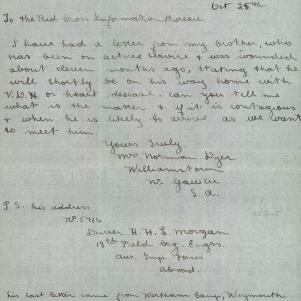 Oct 25th
To the Red Cross Information Bureau.
I have had a letter from my brother, who
has been on active service & was wounded
about eleven months ago, stating that he
will shortly be on his way home with
V.D.H. or heart disease. Can you tell me
what is the matter & if it is contagious
& when he is likely to arrive as we want
to meet him.
Yours truly
Mrs Norman Dyer
Williamstown
Nr Gawler
S.A.
P.S. his address
No 5416
Driver H. H. S. Morgan
13th Field Coy. Engrs.
Aus. Imp. Forces
Abroad.
his last letter came from Westham Camp, Weymouth